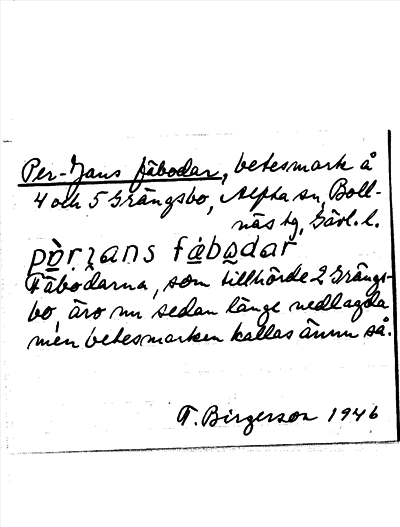 Per-Jans fäbodar, betesmark å
4 och 5 Grängsbo, Alfta sn, Boll-
näs tg, Gävl. l.
pò̤r ja̤ns fä́bo̤dar
Fäbodarna, som tillhörde 2 Grängs-
bo, äro nu sedan länge nedlagda
men betesmarken kallas ännu så.
T. Birgerson 1946